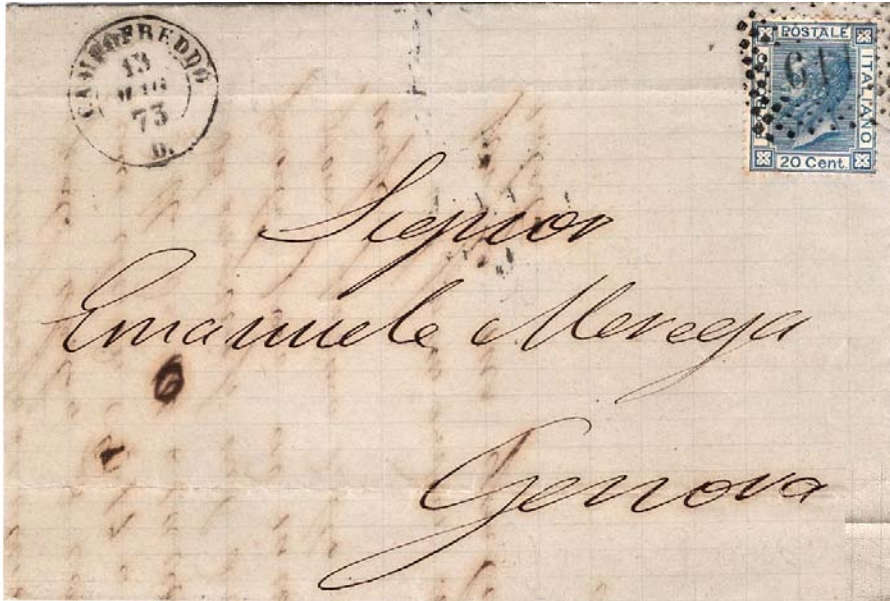 CAMPOFREDDO
13
MAG
73
POSTALE
ITALIANO
20 Cent.
Signor
Emanuele Merega
Genova